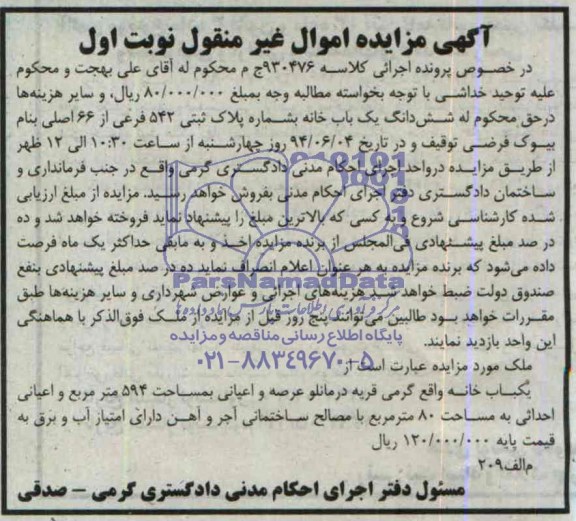 آگهی مزایده اموال غیر منقول نوبت اول
در خصوص پرونده اجرائی کلاسه ۹۳۰۴۷۶ج م محکوم له آقای علی بهجت و محکوم
علیه توحید خداشی با توجه بخواسته مطالبه وجه بمبلغ ۸۰/۰۰۰/۰۰۰ ریال، و سایر هزینه‌ها
درحق محکوم له شش‌دانگ یک باب خانه بشماره پلاک ثبتی ۵۴۲ فرعی از ۶۶ اصلی بنام
بیوک فرضی توقیف و در تاریخ ۹۴/۰۶/۰۴ روز چهارشنبه از ساعت ۱۰:۳۰ الی ۱۲ ظهر
از طریق مزایده درواحد اجرای احکام مدنی دادگستری گرمی واقع در جنب فرمانداری و
ساختمان دادگستری دفتر اجرای احکام مدنی بفروش خواهد رسید. مزایده از مبلغ ارزیابی
شده کارشناسی شروع و به کسی که بالاترین مبلغ را پیشنهاد نماید فروخته خواهد شد و ده
در صد مبلغ پیشنهادی فی‌المجلس از برنده مزایده اخذ و به مابقی حداکثر یک ماه فرصت
داده می‌شود که برنده مزایده به هر عنوان اعلام انصراف نماید ده در صد مبلغ پیشنهادی بنفع
صندوق دولت ضبط خواهد شد هزینه‌های اجرائی و عوارض شهرداری و سایر هزینه‌ها طبق
مقررات خواهد بود طالبین می‌توانند پنج روز قبل از مزایده از ملک فوق‌الذکر با هماهنگی
این واحد بازدید نمایند.
ملک مورد مزایده عبارت است از
یکباب خانه واقع گرمی قریه درمانلو عرصه و اعیانی بمساحت ۵۹۴ متر مربع و اعیانی
احداثی به مساحت ۸۰ مترمربع با مصالح ساختمانی آجر و آهن دارای امتیاز آب و برق به
قیمت پایه ۱۲۰/۰۰۰/۰۰۰ ریال
م‌الف۲۰۹
مسئول دفتر اجرای احکام مدنی دادگستری گرمی – صدقی
ParsNamadData
پایگاه اطلاع رسانی مناقصه و مزایده
۰۲۱-۸۸۳۴۹۶۷۰-۵